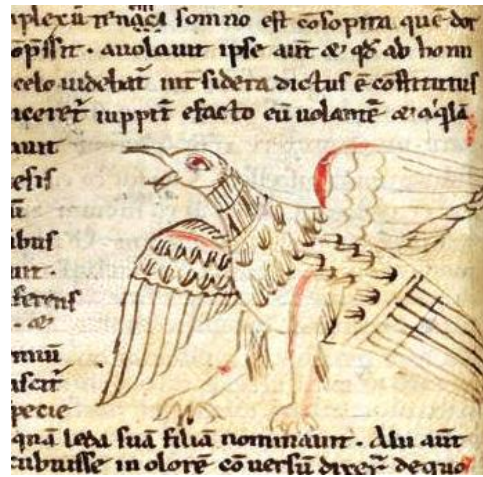 iplexū tenaci somno est cōsopita quē dor
opissit · auolauit ipse aut̄ & qđ ab homi
celo uidebat̄ int̄ sidera dictus ē cōstitutus
aceret̄ iuppit̄ efacto eū uolantē & aqlā
auit
esis
ū
ibus
unt ·
ferens
· &
mniū
ascit̄
pecie
quā leda suā filiā nominauit · Alii aūt
cubuisse in olorē cōuersū dixer̄ dequo